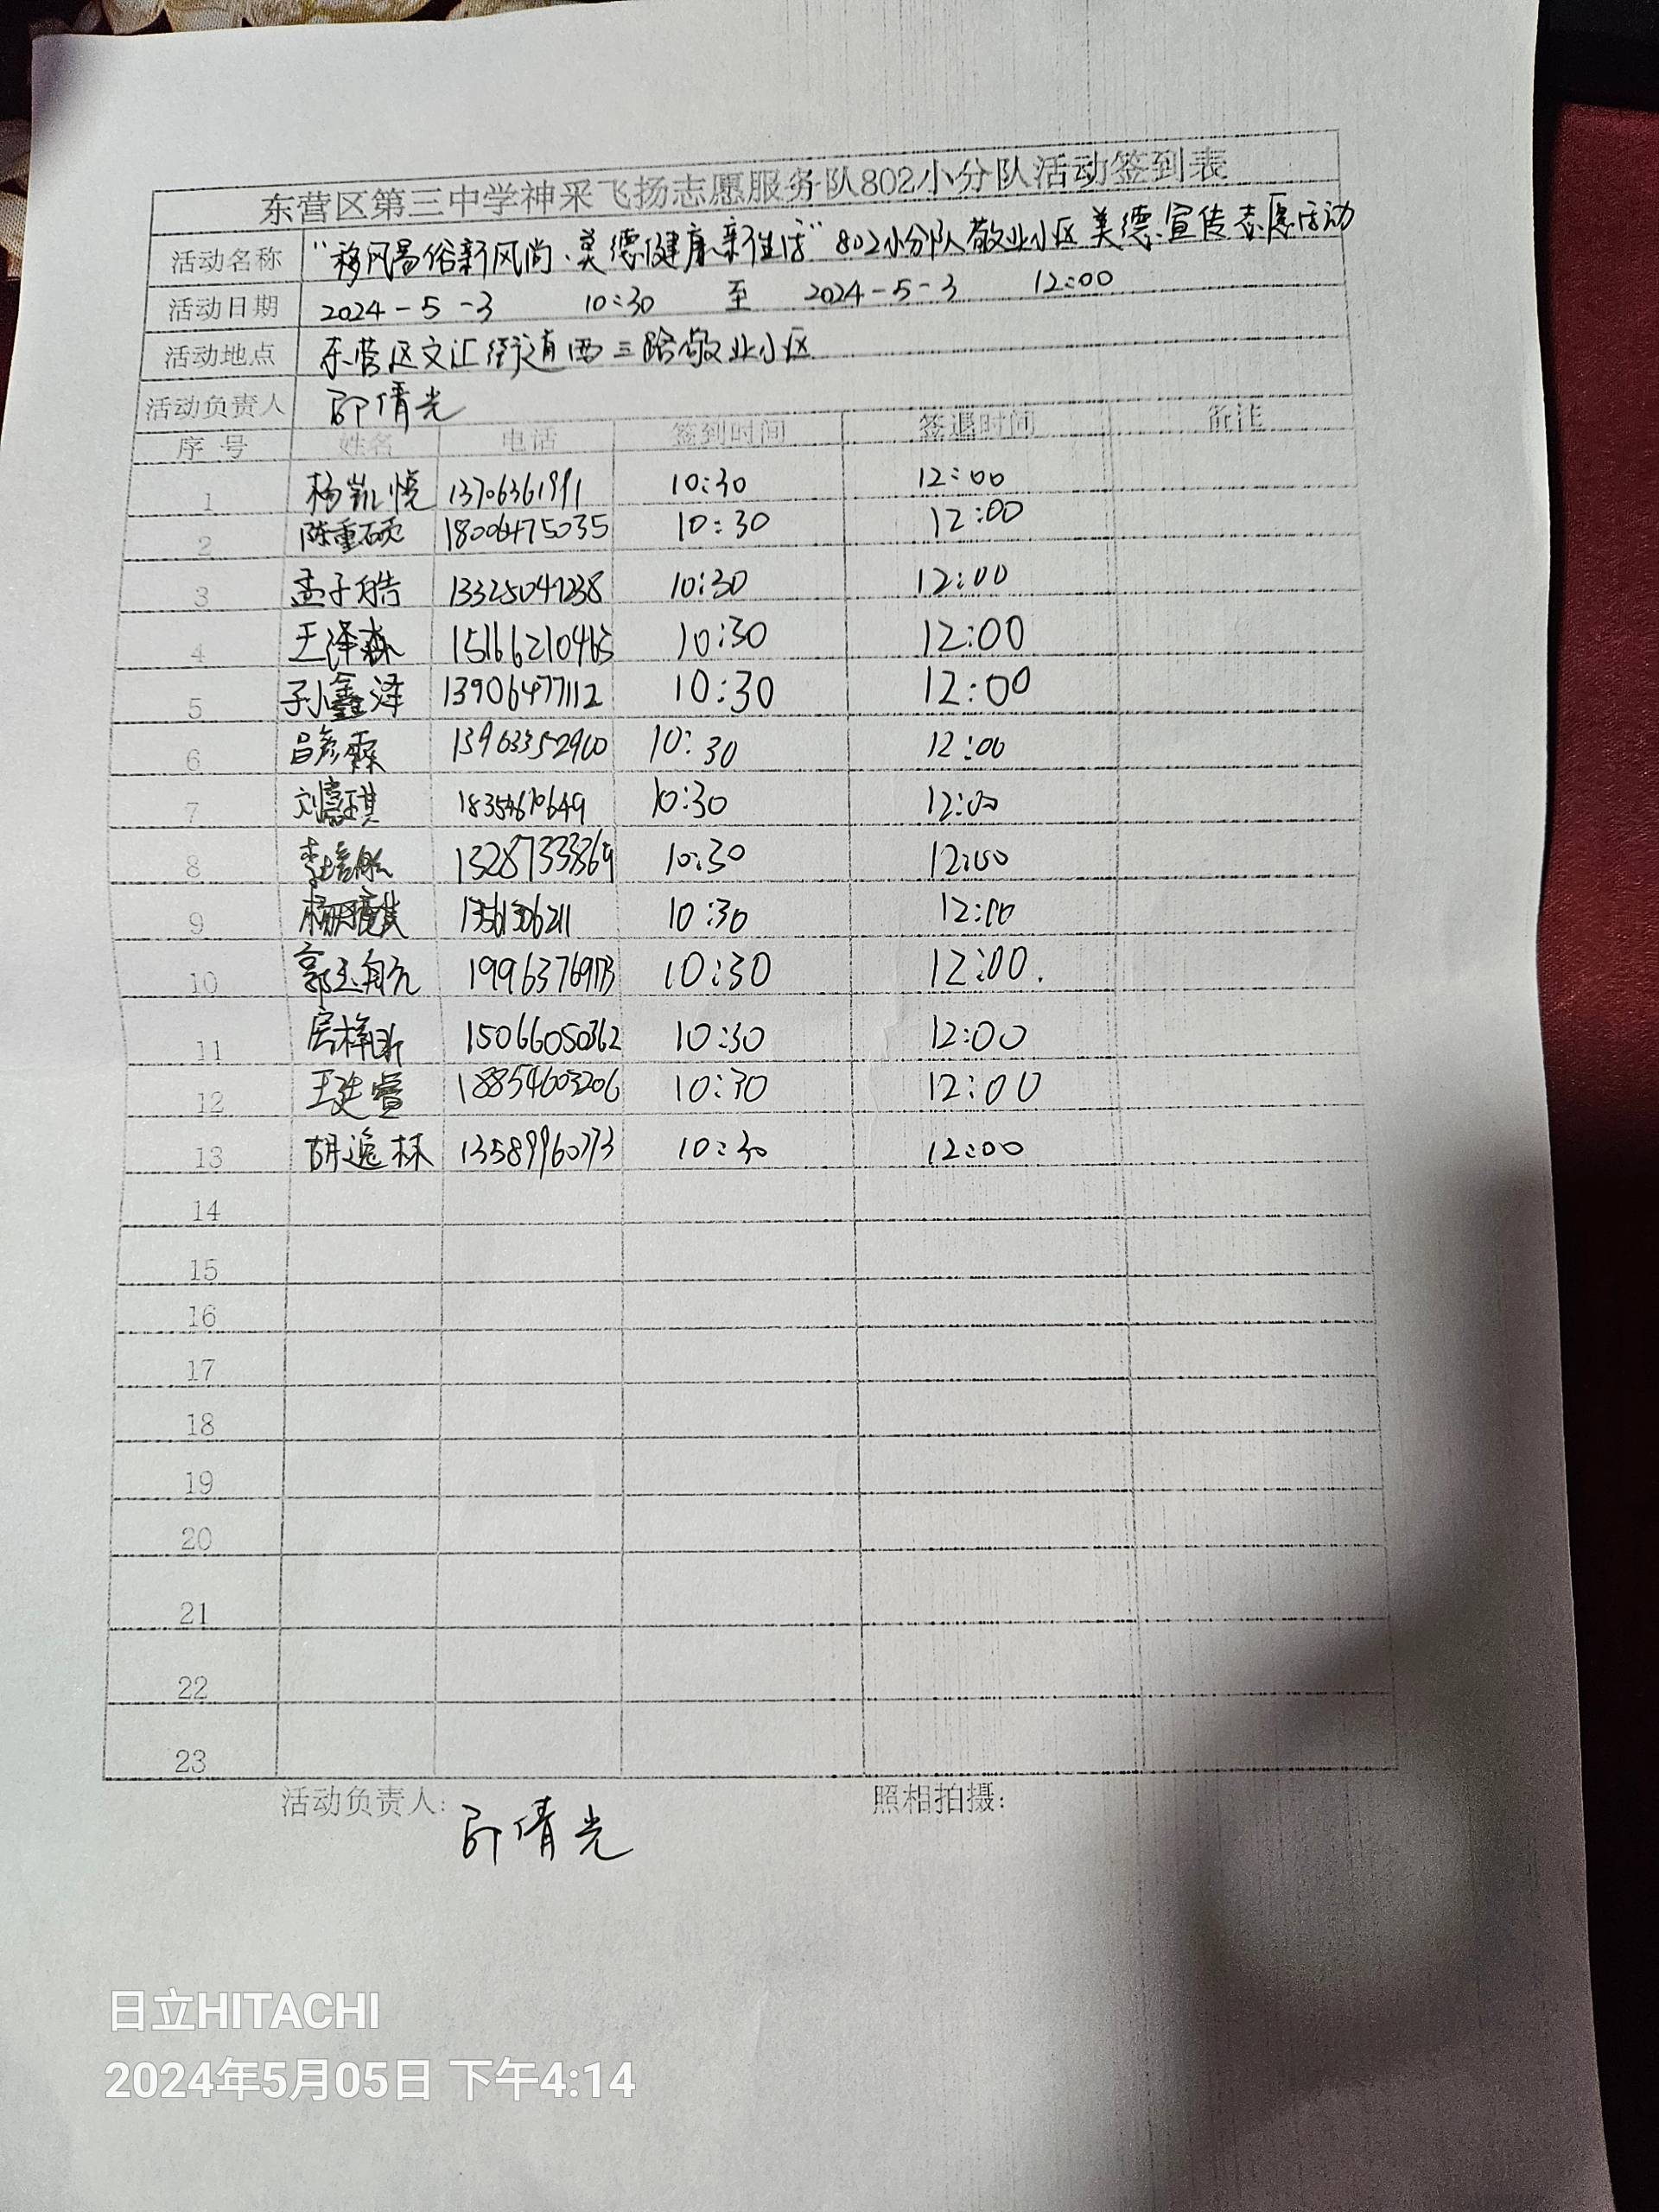 东营区第三中学神采飞扬志愿服务队802小分队活动签到表
活动名称 "移风易俗新风尚、美德健康新生活" 802小分队敬业小区美德宣传志愿活动
活动日期 2024-5-3 10:30 至 2024-5-3 12:00
活动地点 东营区文汇街道西三路敬业小区
活动负责人 邵倩光
序号 姓名 电话 签到时间 签退时间 备注
1 杨凯悦 13706361991 10:30 12:00
2 陈重硕 18006475035 10:30 12:00
3 孟子皓 13325047238 10:30 12:00
4 王泽森 15166210463 10:30 12:00
5 孙鑫泽 13906477112 10:30 12:00
6 吕彦霖 13963352960 10:30 12:00
7 刘嘉琪 18354670649 10:30 12:00
8 13287333869 10:30 12:00
9 10:30 12:00
10 郭玉航 10:30 12:00.
11 房梓昕 15066050362 10:30 12:00
12 王廷睿 18854603206 10:30 12:00
13 胡逸林 13589960773 10:30 12:00
14
15
16
17
18
19
20
21
22
23
活动负责人: 邵倩光 照相拍摄:
日立HITACHI
2024年5月05日 下午4:14